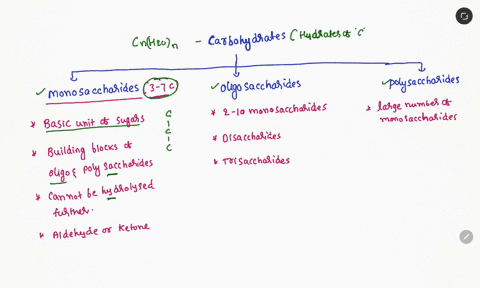 Cn(H2O)n - Carbohydrates (Hydrates of 'C'
✓monosaccharides (3-7 C)
✓oligosaccharides
✓polysaccharides
* Basic unit of sugars
* Building blocks of
oligo & poly saccharides
* Cannot be hydrolysed
further.
* Aldehyde or Ketone
C
C
C
* 2-10 monosaccharides
* Disaccharides
* Trisaccharides
* large number of
monosaccharides